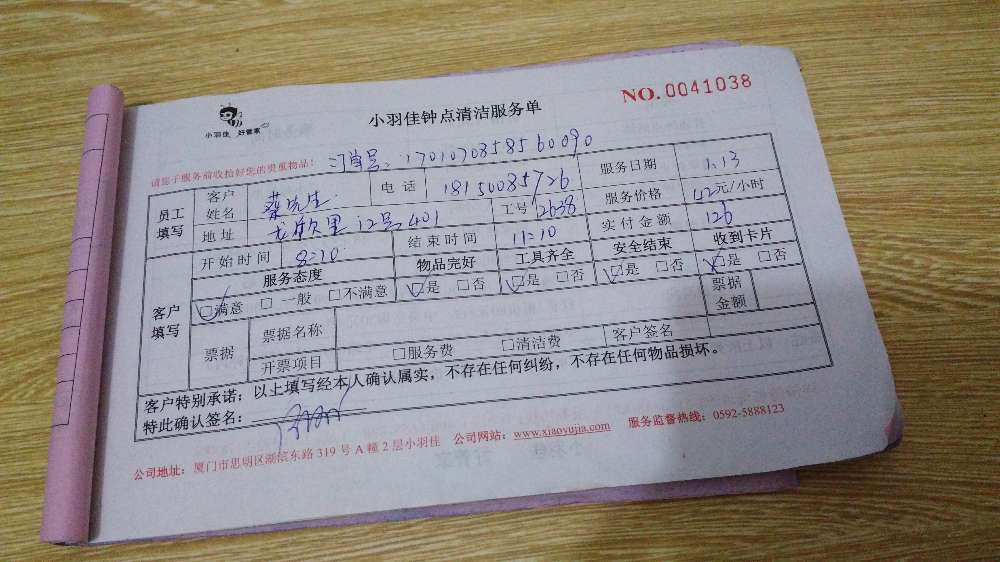 小羽佳 好管家
小羽佳钟点清洁服务单
NO. 0041038
请您于服务前收拾好您的贵重物品! 订单号: 17010703585560090
员工填写 客户姓名 蔡先生 电话 18150085726 服务日期 1.13
地址 里12号401 工号 2638 服务价格 42元/小时
开始时间 8:10 结束时间 11:10 实付金额 126
客户填写 服务态度 物品完好 工具齐全 安全结束 收到卡片
☑满意 □ 一般 □不满意 ☑是 □否 ☑是 □否 ☑是 □否 ☑是 □否
票据 票据名称 票据金额
开票项目 □服务费 □清洁费 客户签名
客户特别承诺: 以上填写经本人确认属实,不存在任何纠纷,不存在任何物品损坏。
特此确认签名:
公司地址: 厦门市思明区湖滨东路 319 号 A 幢 2 层小羽佳 公司网站: www.xiaoyujia.com 服务监督热线: 0592-5888123